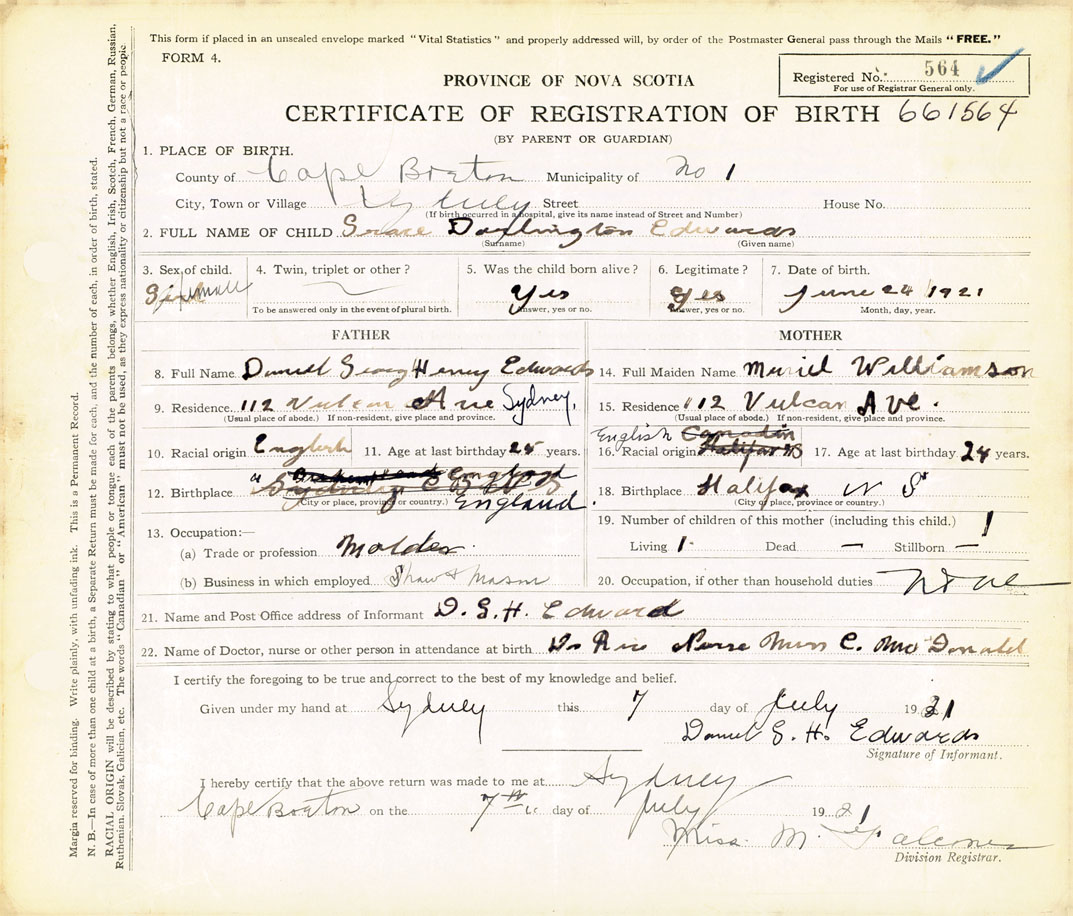 This form if placed in an unsealed envelope marked "Vital Statistics" and properly addressed will, by order of the Postmaster General pass through the Mails "FREE."
FORM 4.
Registered No. 564
For use of Registrar General only.
PROVINCE OF NOVA SCOTIA
CERTIFICATE OF REGISTRATION OF BIRTH 661564
(BY PARENT OR GUARDIAN)
1. PLACE OF BIRTH.
County of Cape Breton Municipality of No 1
City, Town or Village Sydney Street House No.
(If birth occurred in a hospital, give its name instead of Street and Number)
2. FULL NAME OF CHILD Grace Darlington Edwards
(Surname) (Given name)
3. Sex of child. 4. Twin, triplet or other? 5. Was the child born alive? 6. Legitimate? 7. Date of birth.
Girl Yes Yes June 24 1921
To be answered only in the event of plural birth. Answer, yes or no. Answer, yes or no. Month, day, year.
FATHER MOTHER
8. Full Name Daniel George Henry Edwards 14. Full Maiden Name Muriel Williamson
9. Residence 112 Vulcan Ave Sydney, 15. Residence 112 Vulcan Ave.
(Usual place of abode.) If non-resident, give place and province. (Usual place of abode.) If non-resident, give place and province.
English Canadin
10. Racial origin English 11. Age at last birthday 25 years. 16. Racial origin Halifax NS 17. Age at last birthday 24 years.
England
12. Birthplace 18. Birthplace Halifax N S
(City or place, province or country.) England. (City or place, province or country.)
13. Occupation:— 19. Number of children of this mother (including this child.) 1
(a) Trade or profession Molder Living 1 Dead — Stillborn —
(b) Business in which employed Shaw & Mason 20. Occupation, if other than household duties
21. Name and Post Office address of Informant D. G. H. Edward
22. Name of Doctor, nurse or other person in attendance at birth Dr Rice Nurse Miss C. McDonald
I certify the foregoing to be true and correct to the best of my knowledge and belief.
Given under my hand at Sydney this 7 day of July 1921
Daniel G. H. Edwards
Signature of Informant.
I hereby certify that the above return was made to me at Sydney
Cape Breton on the 7th day of July 1921
Miss. M.
Division Registrar.
Margin reserved for binding. Write plainly, with unfading ink. This is a Permanent Record.
N. B.—In case of more than one child at a birth, a Separate Return must be made for each, and the number of each, in order of birth, stated.
RACIAL ORIGIN will be described by stating to what people or tongue each of the parents belongs, whether English, Irish, Scotch, French, German, Russian,
Ruthenian, Slovak, Galician, etc. The words "Canadian" or "American" must not be used, as they express nationality or citizenship but not a race or people.